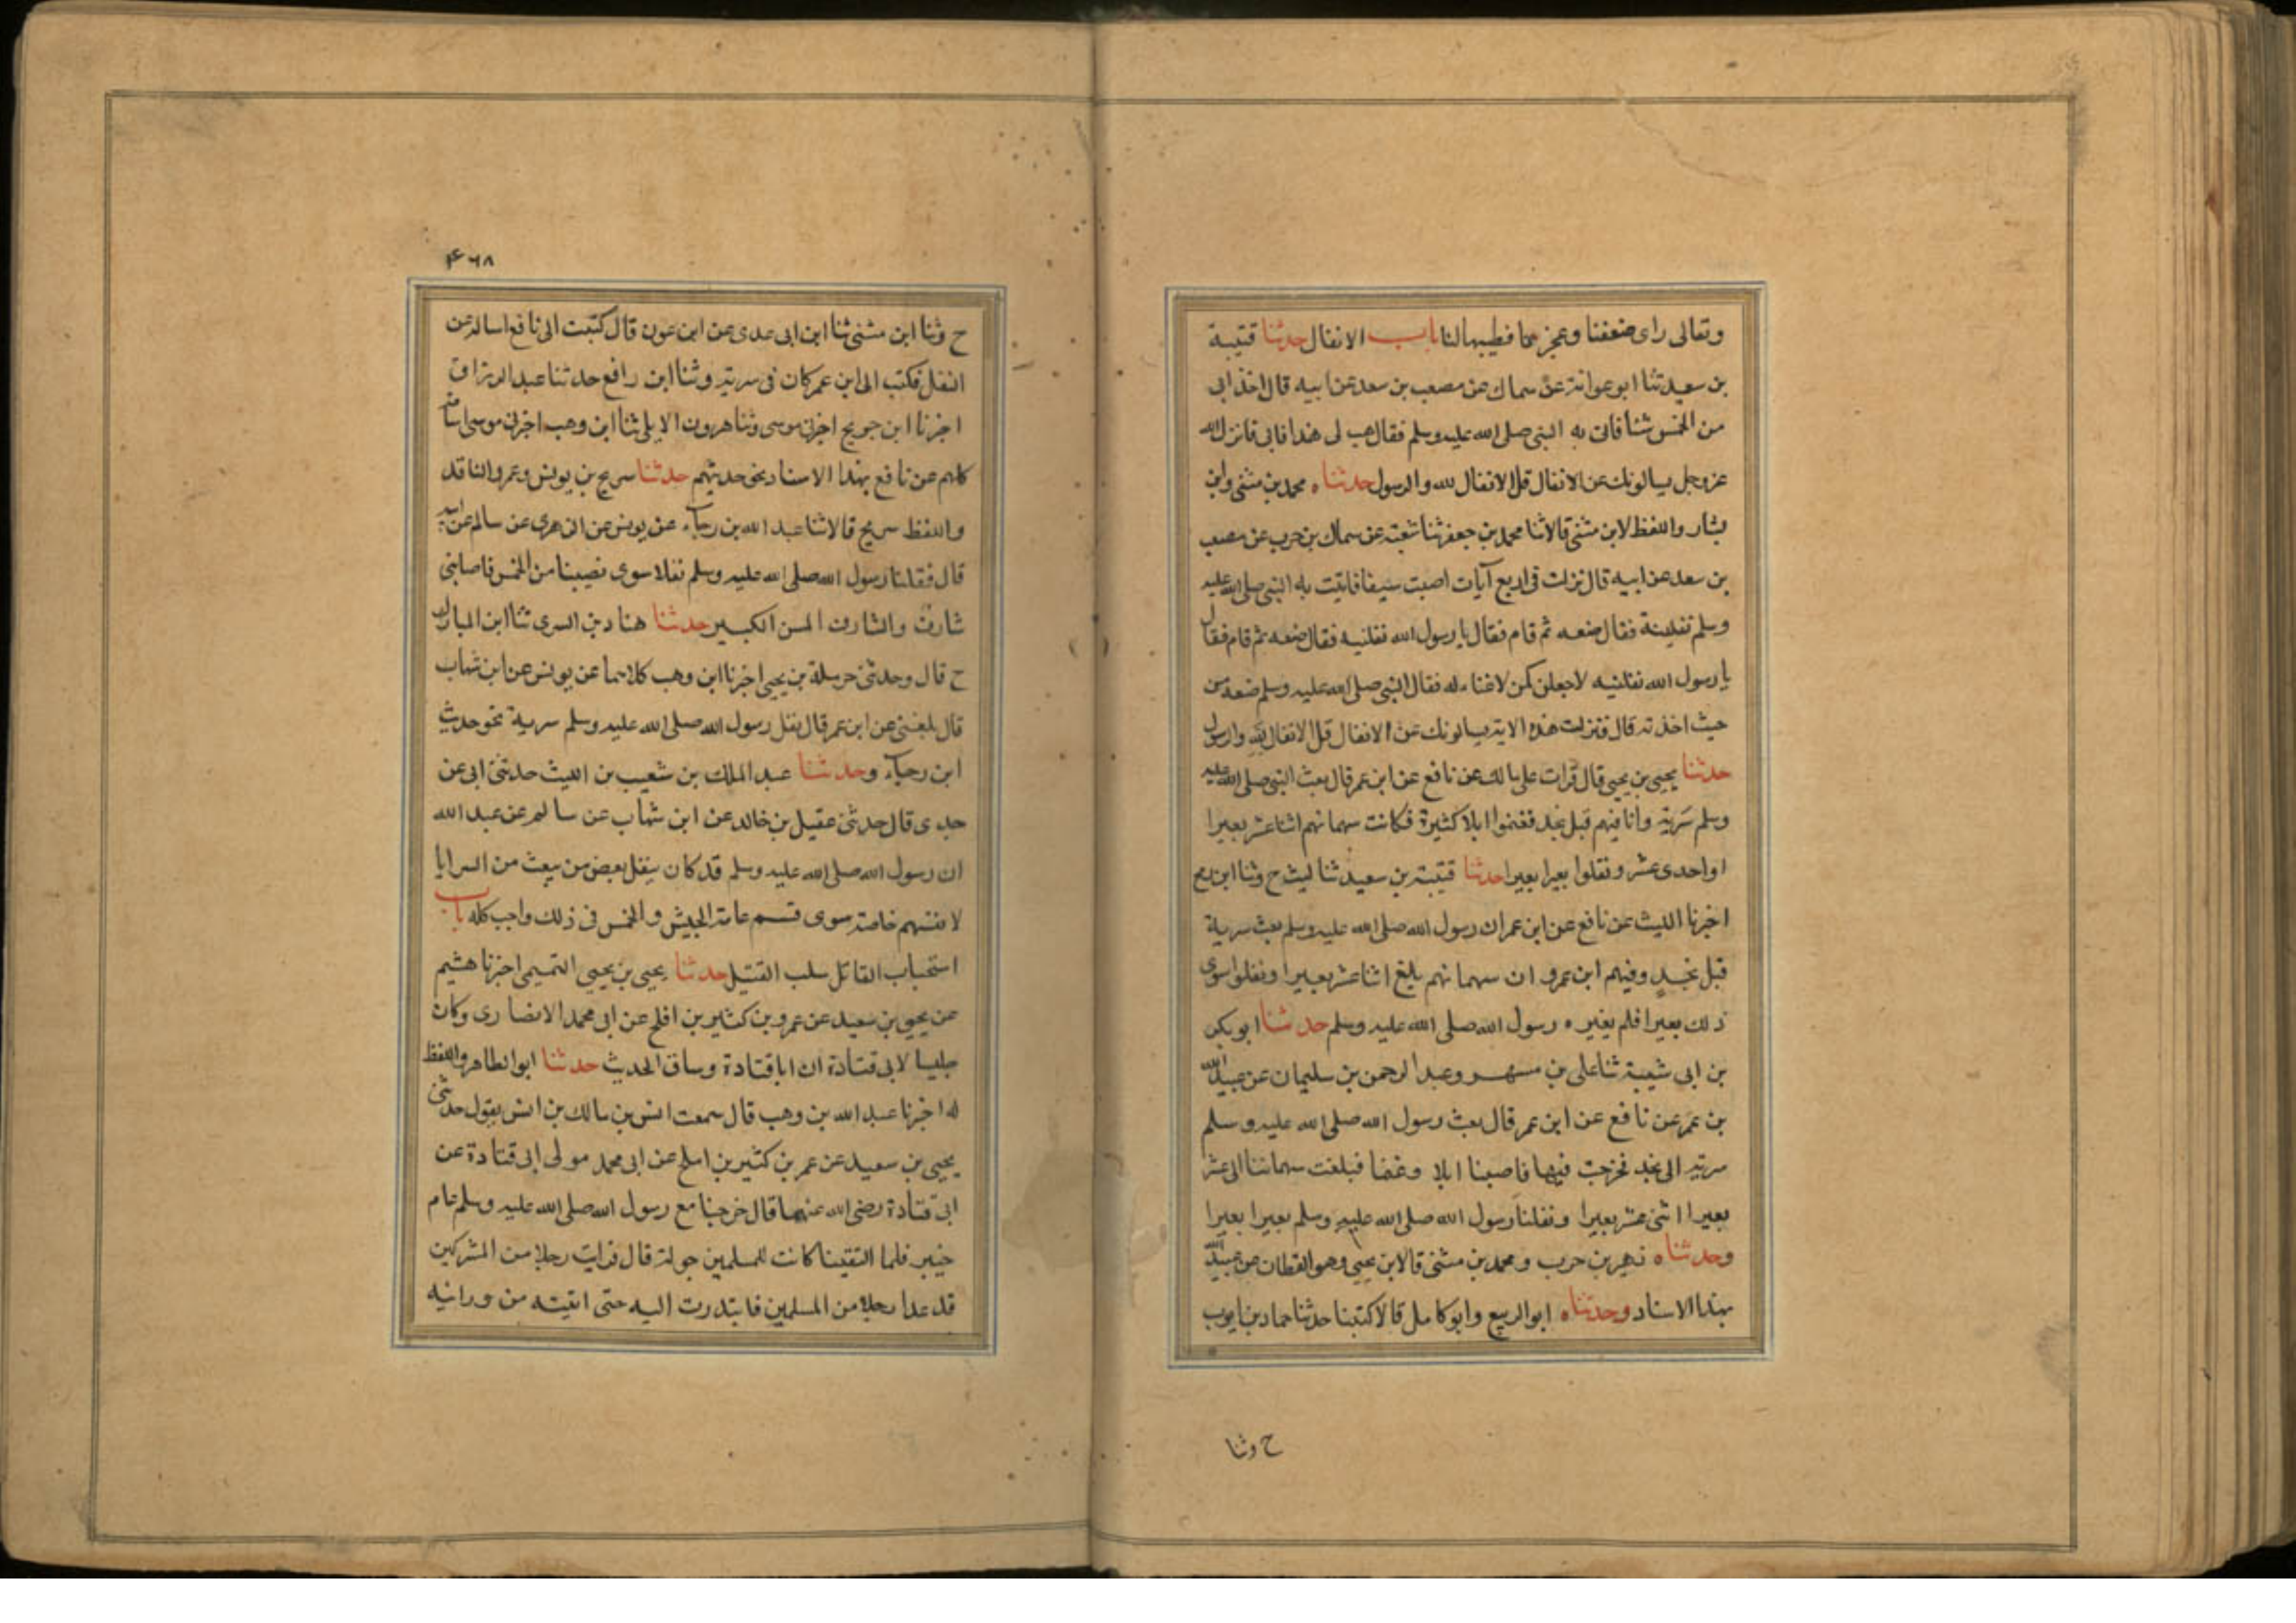 وتعالى راى ضعفنا وعجزنا فطيبها لنا باب الانفال حدثنا قتيبة
بن سعيد ثنا ابو عوانة عن سماك عن مصعب بن سعد عن ابيه قال اخذ ابى
من الخمس شئا فاتى به النبى صلى الله عليه وسلم فقال هب لى هذا فابى فانزل الله
عزوجل يسالونك عن الانفال قل الانفال لله والرسول حدثناه محمد بن مثنى وابن
بشار واللفظ لابن مثنى قالا ثنا محمد بن جعفر ثنا شعبة عن سماك بن حرب عن مصعب
بن سعد عن ابيه قال نزلت فى اربع آيات اصبت سيفا فاتيت به النبى صلى الله عليه
وسلم نفلينه فقال ضعه ثم قام فقال يا رسول الله نفلنيه فقال ضعه ثم قام فقال
يا رسول الله نفلنيه لاجعلن كمن لا غناء له فقال النبى صلى الله عليه وسلم ضعه من
حيث اخذته قال فنزلت هذه الاية يسالونك عن الانفال قل الانفال لله والرسول
حدثنا يحيى بن يحيى قال قرات على مالك عن نافع عن ابن عمر قال بعث النبى صلى الله عليه
وسلم سرية وانا فيهم قبل نجد فغنموا ابلا كثيرة فكانت سهمانهم اثنا عشر بعيرا
او احدى عشر ونفلوا بعيرا بعيرا حدثنا قتيبة بن سعيد ثنا ليث ح وثنا ابن رمح
اخبرنا الليث عن نافع عن ابن عمر ان رسول الله صلى الله عليه وسلم بعث سرية
قبل نجد وفيهم ابن عمر و ان سهمانهم بلغ اثنا عشر بعيرا ونفلوا سوى
ذلك بعيرا فلم يغيره رسول الله صلى الله عليه وسلم حدثنا ابو بكر
بن ابى شيبة ثنا على بن مسهر وعبد الرحمن بن سليمان عن عبيد الله
بن عمر عن نافع عن ابن عمر قال بعث رسول الله صلى الله عليه وسلم
سرية الى نجد فخرجت فيها فاصبنا ابلا وغنما فبلغت سهماننا اثنى عشر
بعيرا اثنى عشر بعيرا ونفلنا رسول الله صلى الله عليه وسلم بعيرا بعيرا
وحدثناه زهير بن حرب ومحمد بن مثنى قالا بن يحيى وهو القطان عن عبيد الله
بهذا الاسناد وحدثناه ابو الربيع وابو كامل قالا كتبنا حدثنا حماد بن ايوب
ح وثنا
۴۶۸
ح وثنا ابن مثنى ثنا ابن ابى عدى عن ابن عون قال كتبت الى نافع اساله عن
النفل فكتب الى ابن عمر كان فى سرية وثنا ابن رافع حدثنا عبد الرزاق
اخبرنا ابن جريج اخبرنى موسى وثنا هرون الايلى ثنا ابن وهب اخبرنى موسى اسامة
كلهم عن نافع بهذا الاسناد نحو حديثهم حدثنا سريج بن يونس وعمرو الناقد
واللفظ سريج قالا ثنا عبد الله بن رجاء عن يونس عن الزهرى عن سالم عن ابيه
قال فقلنا رسول الله صلى الله عليه وسلم نفلا سوى نصيبنا من الخمس فاصابنى
شارف والشارف المسن الكبير حدثنا هناد بن السرى ثنا ابن المبارك
ح قال وحدثنى حرملة بن يحيى اخبرنا ابن وهب كلاهما عن يونس عن ابن شهاب
قال بلغنى عن ابن عمر قال نفل رسول الله صلى الله عليه وسلم سرية نحو حديث
ابن رجاء وحدثنا عبد الملك بن شعيب بن الليث حدثنى ابى عن
جدى قال حدثنى عقيل بن خالد عن ابن شهاب عن سالم عن عبد الله
ان رسول الله صلى الله عليه وسلم قد كان ينفل بعض من يبعث من السرايا
لانفسهم خاصة سوى قسم عامة الجيش والخمس فى ذلك واجب كله باب
استحباب القاتل سلب القتيل حدثنا يحيى بن يحيى التميمى اخبرنا هشيم
عن يحيى بن سعيد عن عمرو بن كثير بن افلح عن ابى محمد الانصارى وكان
جليسا لابى قتادة ان ابا قتادة وساق الحديث حدثنا ابو الطاهر واللفظ
له اخبرنا عبد الله بن وهب قال سمعت انس بن مالك بن انس يقول حدثنى
يحيى بن سعيد عن عمر بن كثير بن افلح عن ابى محمد مولى ابى قتادة عن
ابى قتادة رضى الله عنهما قال خرجنا مع رسول الله صلى الله عليه وسلم عام
خيبر فلما التقينا كانت للمسلمين جولة قال فرايت رجلا من المشركين
قد علا رجلا من المسلمين فابتدرت اليه حتى اتيته من ورائيه